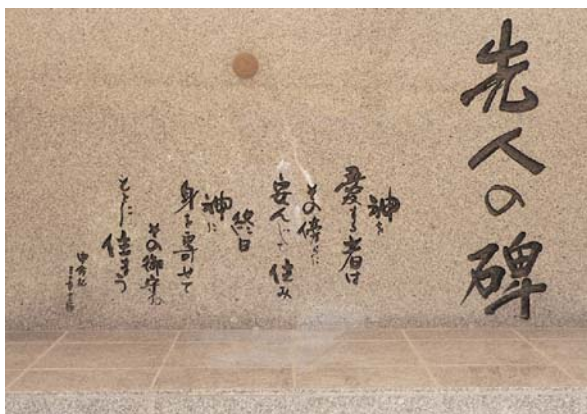 先人の碑
神を
愛する者は
その傍らに
安んじて住み
終日
神に
身を寄せて
その御守りの
もとに住まう
申命記